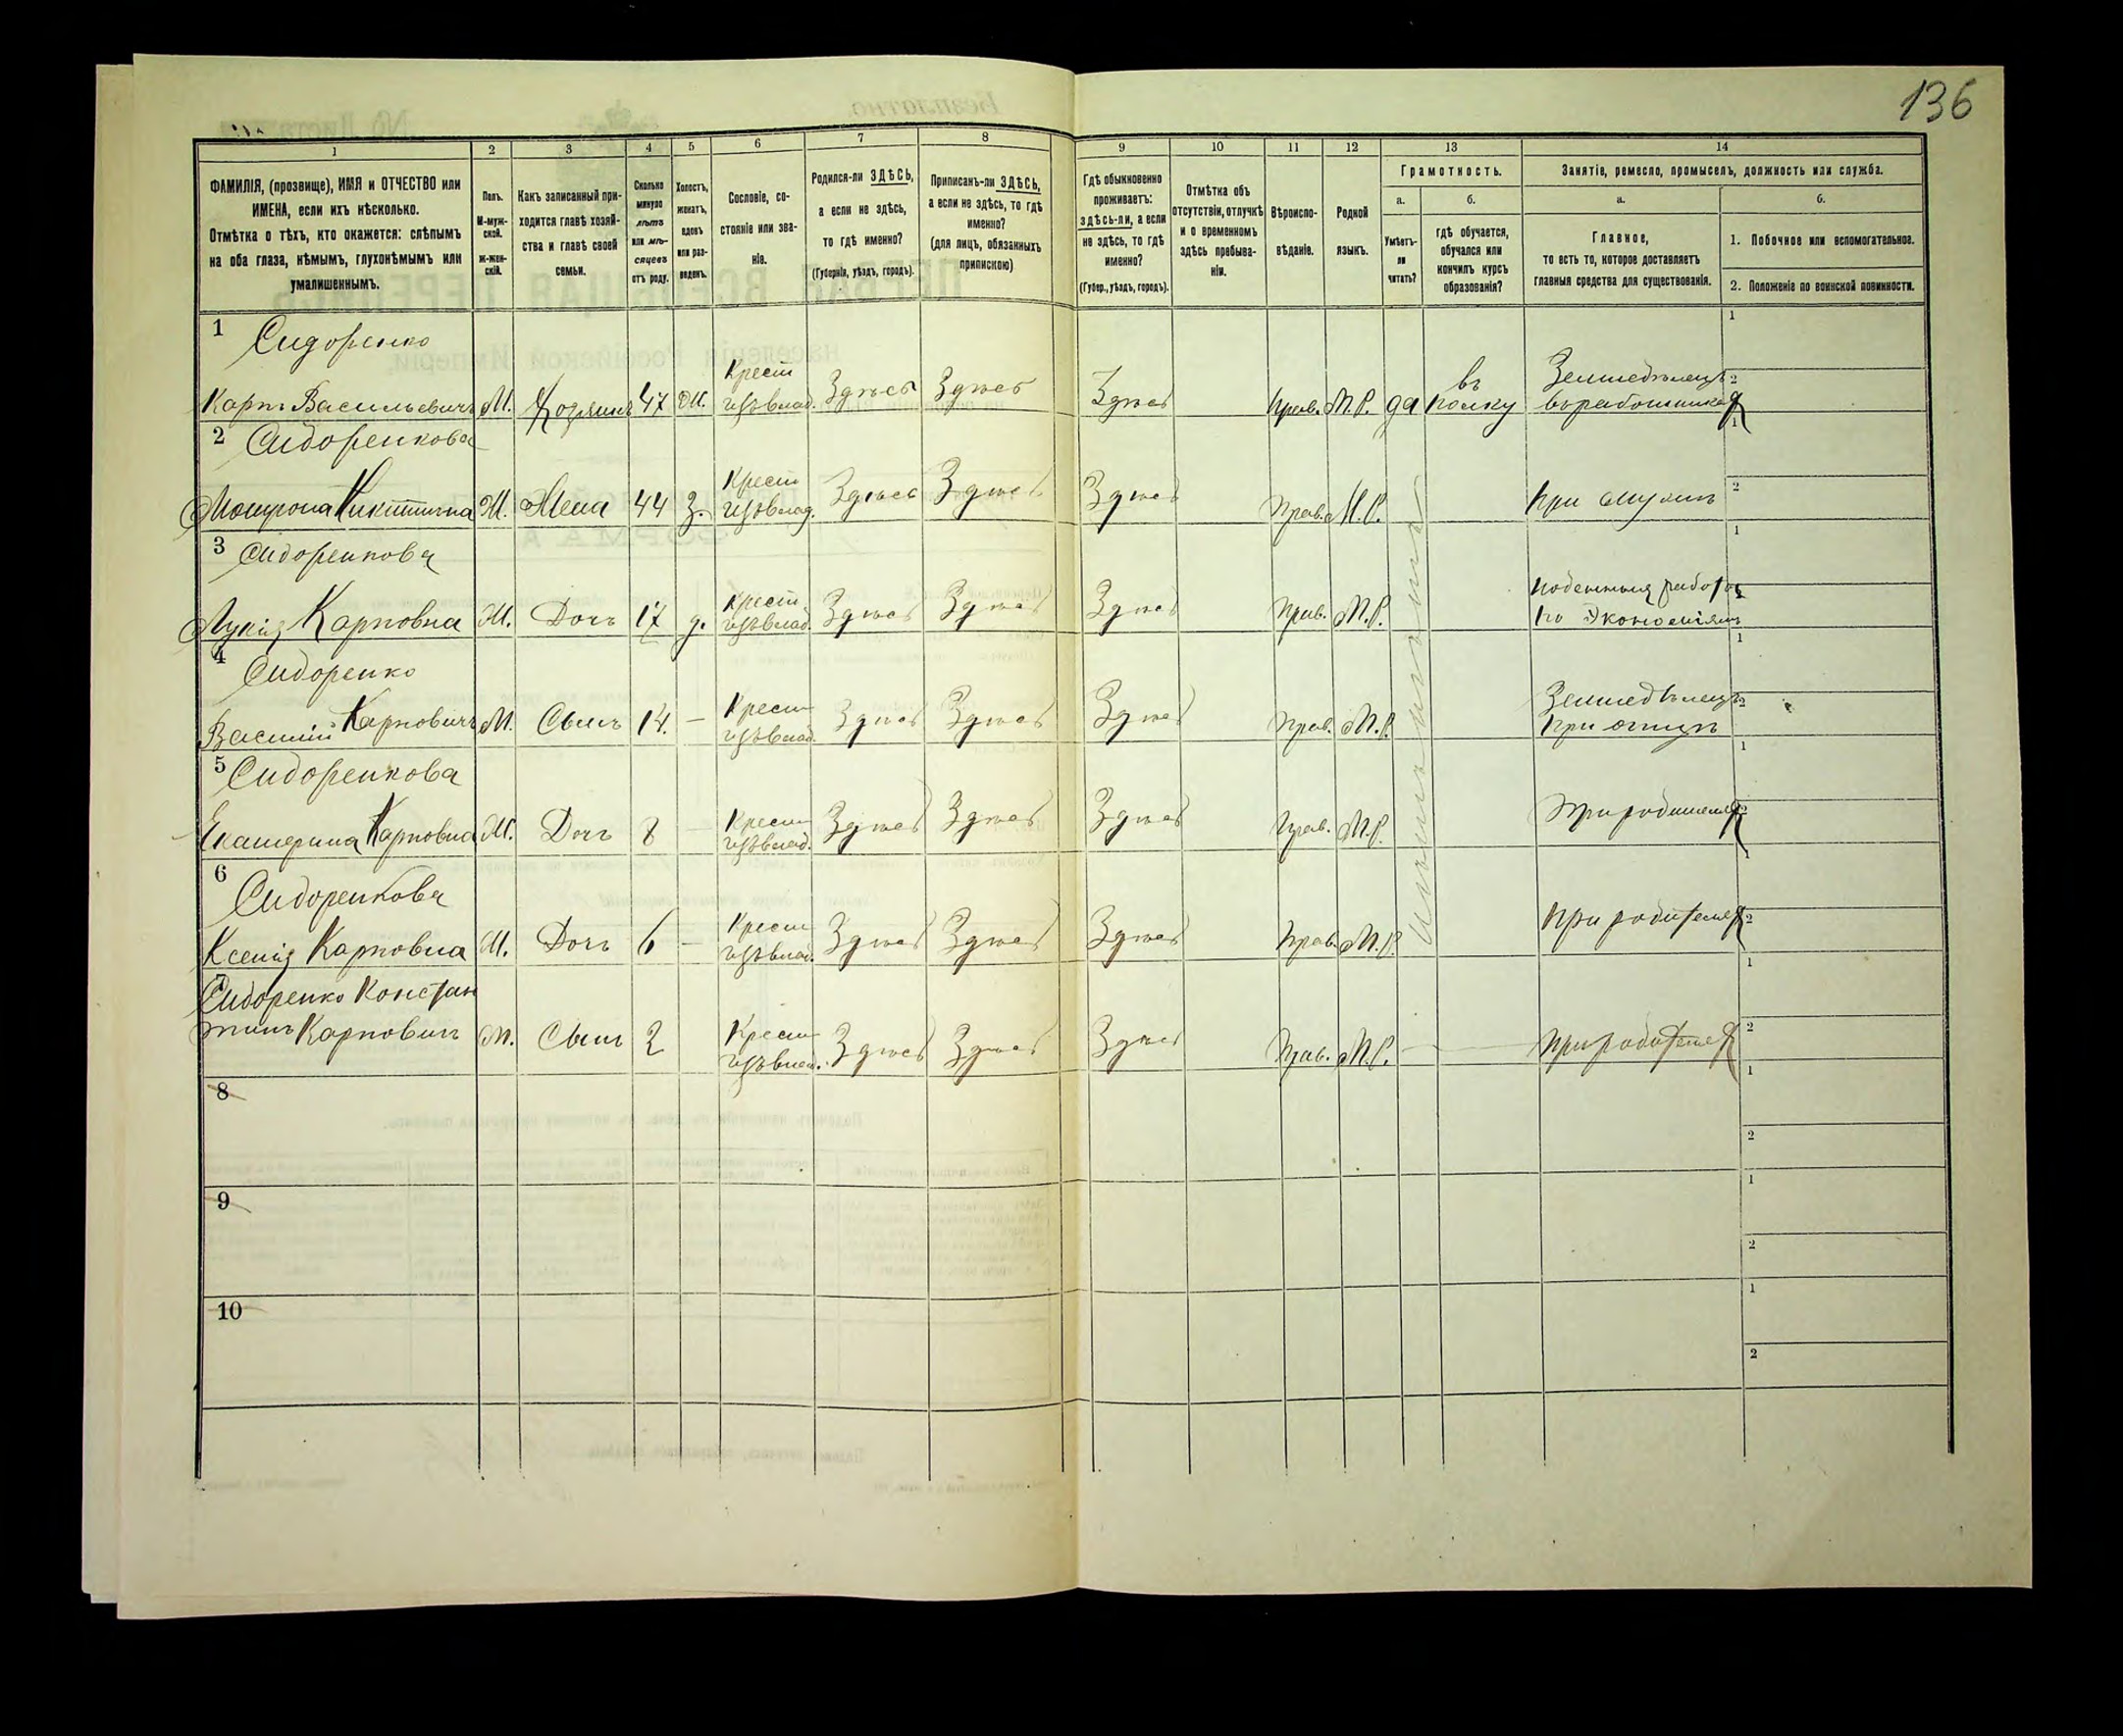 136
1 2 3 4 5 6 7 8 9 10 11 12 13 14
ФАМИЛІЯ, (прозвище), ИМЯ и ОТЧЕСТВО или
ИМЕНА, если ихъ нѣсколько.
Отмѣтка о тѣхъ, кто окажется: слѣпымъ
на оба глаза, нѣмымъ, глухонѣмымъ или
умалишеннымъ.
Полъ.
М-муж-
ской.
Ж-жен-
скій.
Какъ записанный при-
ходится главѣ хозяй-
ства и главѣ своей
семьи.
Сколько
минуло
лѣтъ
или мѣ-
сяцевъ
отъ роду.
Холостъ,
женатъ,
вдовъ
или раз-
веденъ.
Сословіе, со-
стояніе или зва-
ніе.
Родился-ли ЗДѢСЬ,
а если не здѣсь,
то гдѣ именно?
(Губернія, уѣздъ, городъ).
Приписанъ-ли ЗДѢСЬ,
а если не здѣсь, то гдѣ
именно?
(для лицъ, обязанныхъ
припискою)
Гдѣ обыкновенно
проживаетъ:
здѣсь-ли, а если
не здѣсь, то гдѣ
именно?
(Губер., уѣздъ, городъ).
Отмѣтка объ
отсутствіи, отлучкѣ
и о временномъ
здѣсь пребыва-
ніи.
Вѣроиспо-
вѣданіе.
Родной
языкъ.
Грамотность.
а.
Умѣетъ-
ли
читать?
б.
гдѣ обучается,
обучался или
кончилъ курсъ
образованія?
Занятіе, ремесло, промыселъ, должность или служба.
а.
Главное,
то есть то, которое доставляетъ
главныя средства для существованія.
б.
1. Побочное или вспомогательное.
2. Положеніе по воинской повинности.
1 Сидоренко
Карпъ Васильевичъ М. Хозяинъ 47 Ж. Крест Здѣсь Здѣсь Здѣсь Прав. М.Р. да въ полку Земледѣлецъ
2 Сидоренкова
Никитична Ж. Жена 44 З. Крест Здѣсь Здѣсь Здѣсь Прав. М.Р. При мужѣ
3 Сидоренкова
Лукія Карповна Ж. Дочь 17 д. Крест. Здѣсь Здѣсь Здѣсь Прав. М.Р.
4 Сидоренко
Василій Карповичъ М. Сынъ 14. — Крест Здѣсь Здѣсь Здѣсь Прав. М.Р. Земледѣлецъ
При отцѣ
5 Сидоренкова
Екатерина Карповна Ж. Дочь 8 — Крест Здѣсь Здѣсь Здѣсь Прав. М.Р. При родителяхъ
6 Сидоренкова
Ксенія Карповна Ж. Дочь 6 — Крест Здѣсь Здѣсь Здѣсь Прав. М.Р. При родителяхъ
7 Сидоренко Констан
тинъ Карповичъ М. Сынъ 2 Крест Здѣсь Здѣсь Здѣсь Прав. М.Р. — При родителяхъ
8
9
10